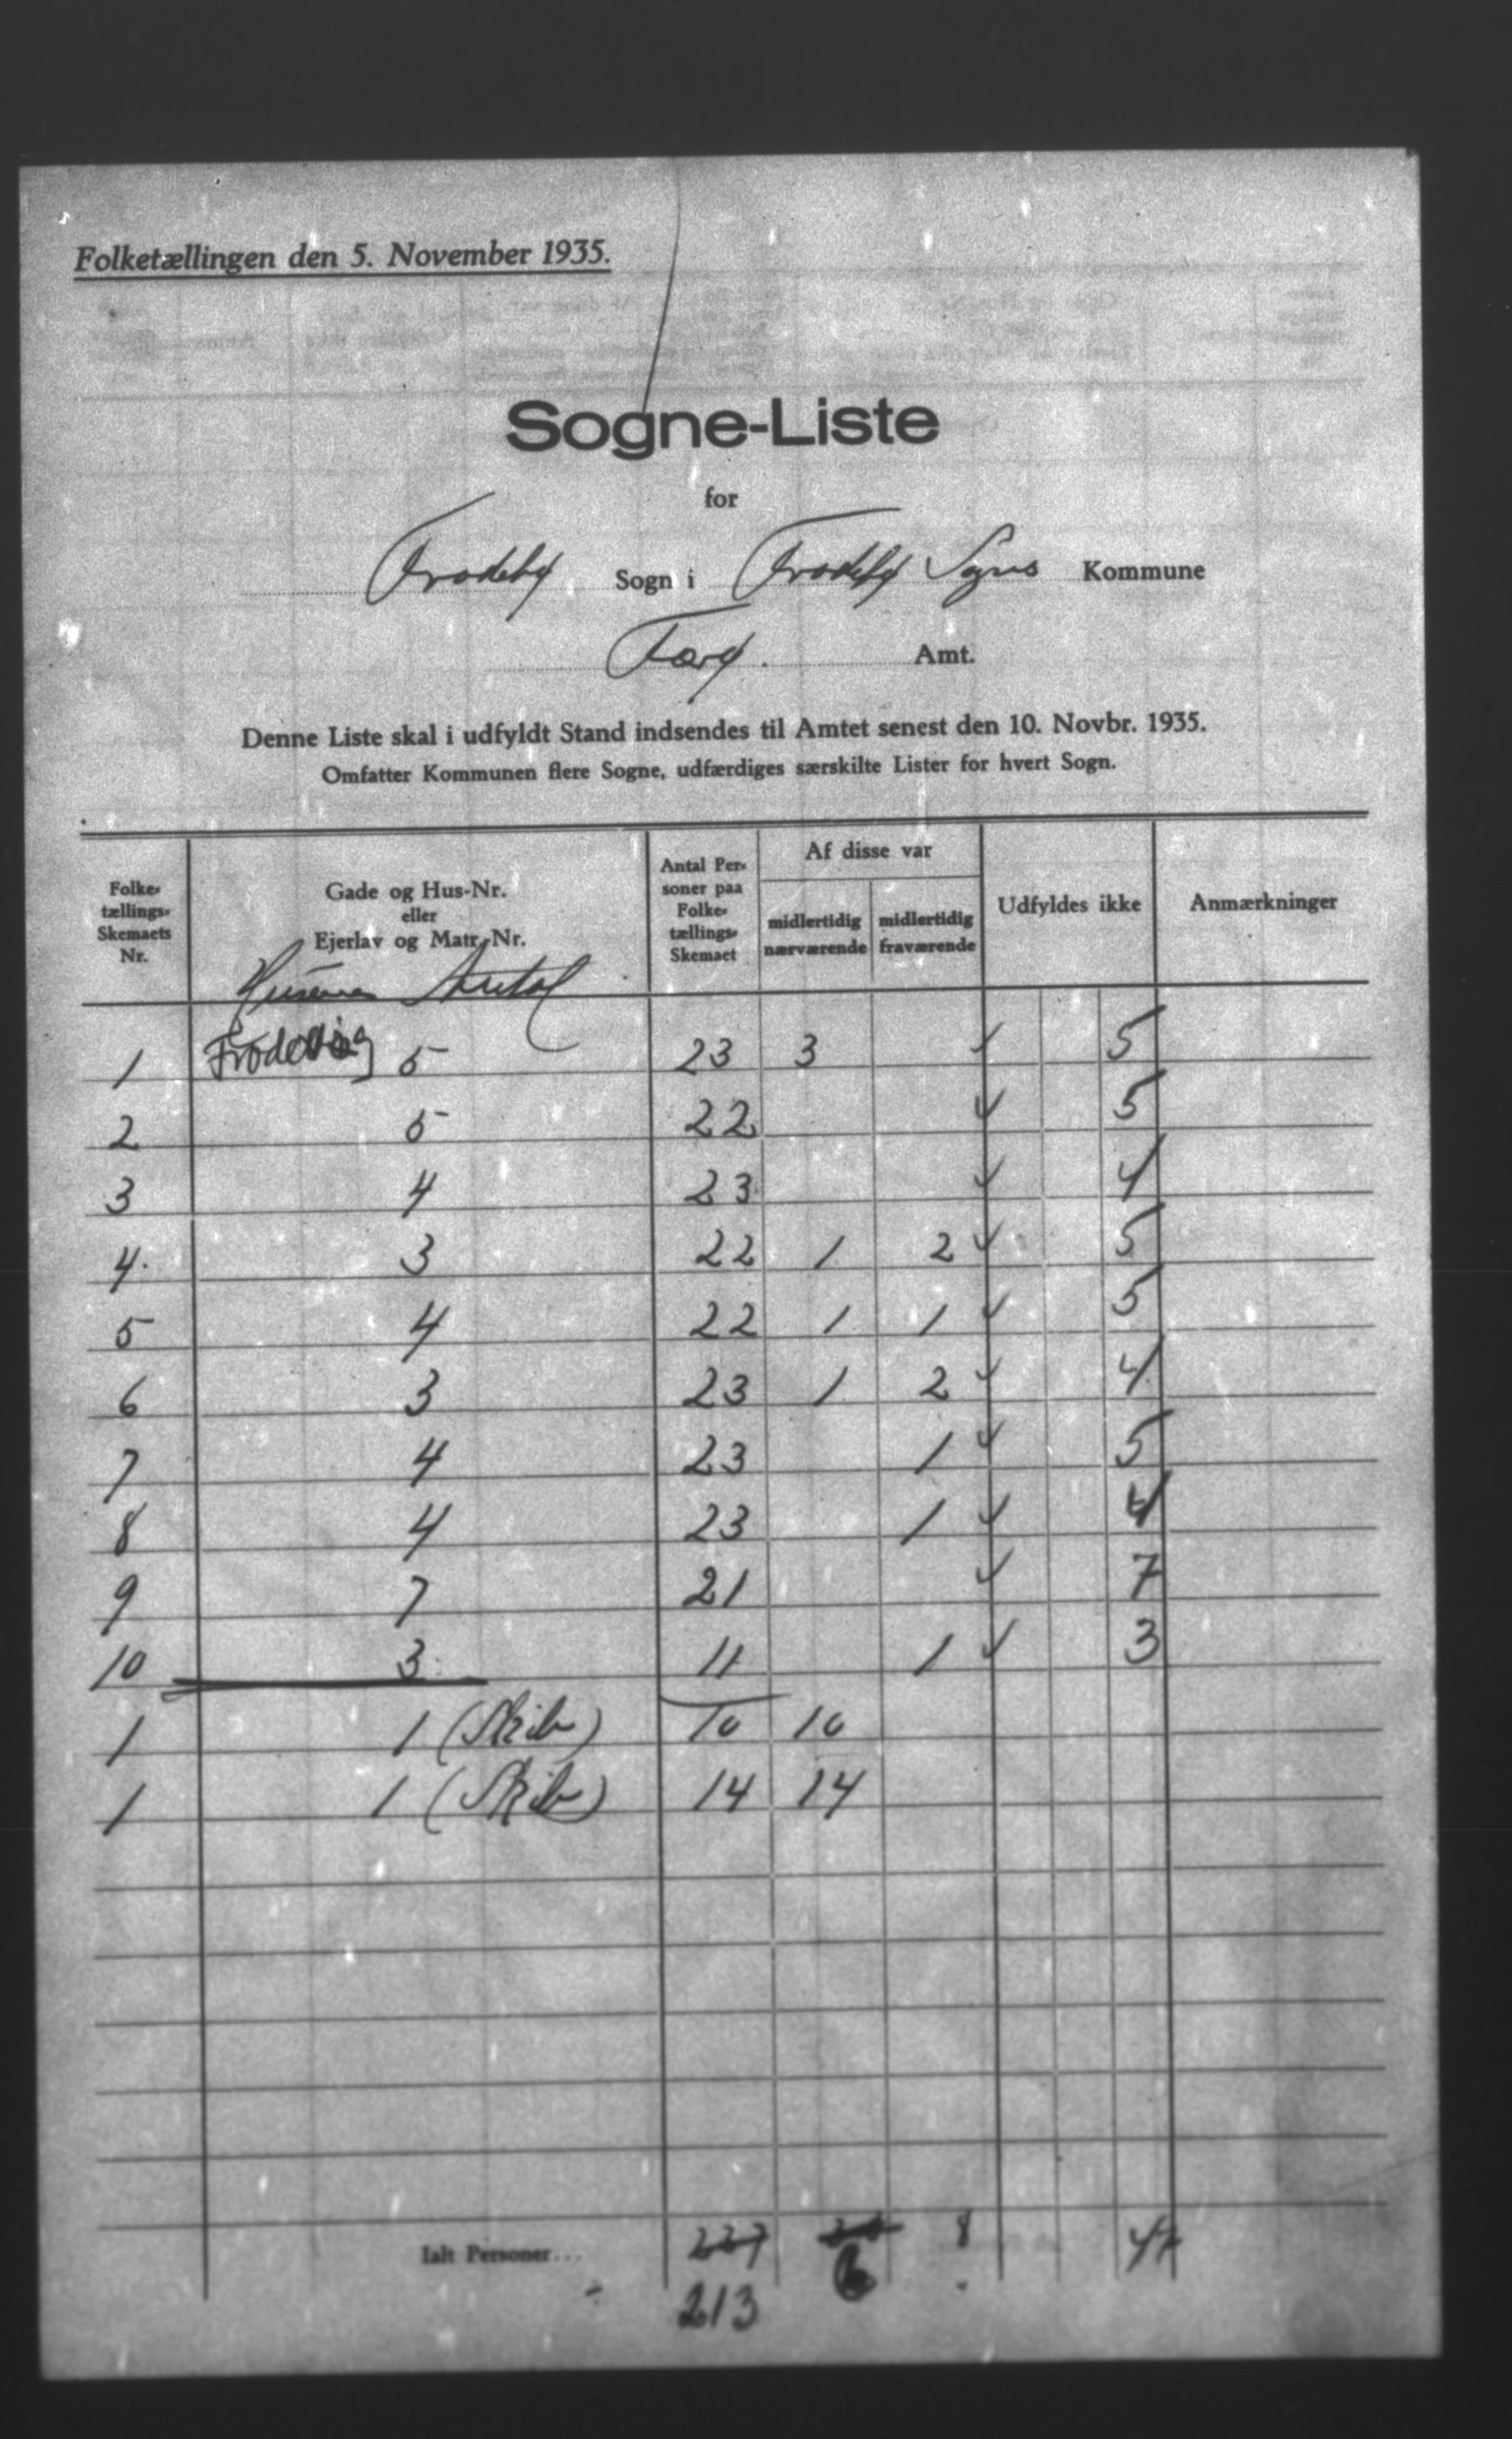 Folketællingen den 5. November 1935.
Sogne-Liste
for
Frodeby Sogn i Frodeby Sogns Kommune
Færø. Amt.
Denne Liste skal i udfyldt Stand indsendes til Amtet senest den 10. Novbr. 1935.
Omfatter Kommunen flere Sogne, udfærdiges særskilte Lister for hvert Sogn.
Folketællings-Skemaets Nr. Gade og Hus-Nr. eller Ejerlav og Matr.-Nr. Antal Personer paa Folketællings-Skemaet Af disse var midlertidig nærværende midlertidig fraværende Udfyldes ikke Anmærkninger
Husenes Antal
1 5 23 3 5
2 5 22 5
3 4 23 4
4. 3 22 1 2 5
5 4 22 1 1 5
6 3 23 1 2 4
7 4 23 1 5
8 4 23 1 4
9 7 21 7
10 3 11 1 3
1 1 (Skib) 10 10
1 1 (Skib) 14 14
Ialt Personer... 237 8 47
213 6